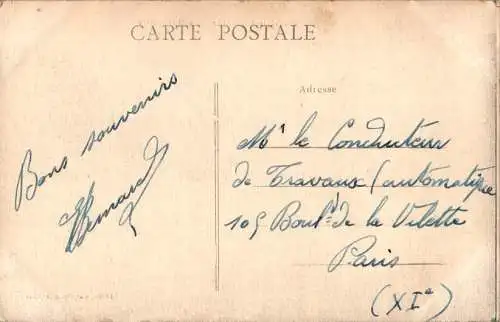 CARTE POSTALE
Bons souvenirs
Adresse
Mr le Conducteur
de Travaux (automatique
105 Boul.d de la Villette
Paris
(XIe)